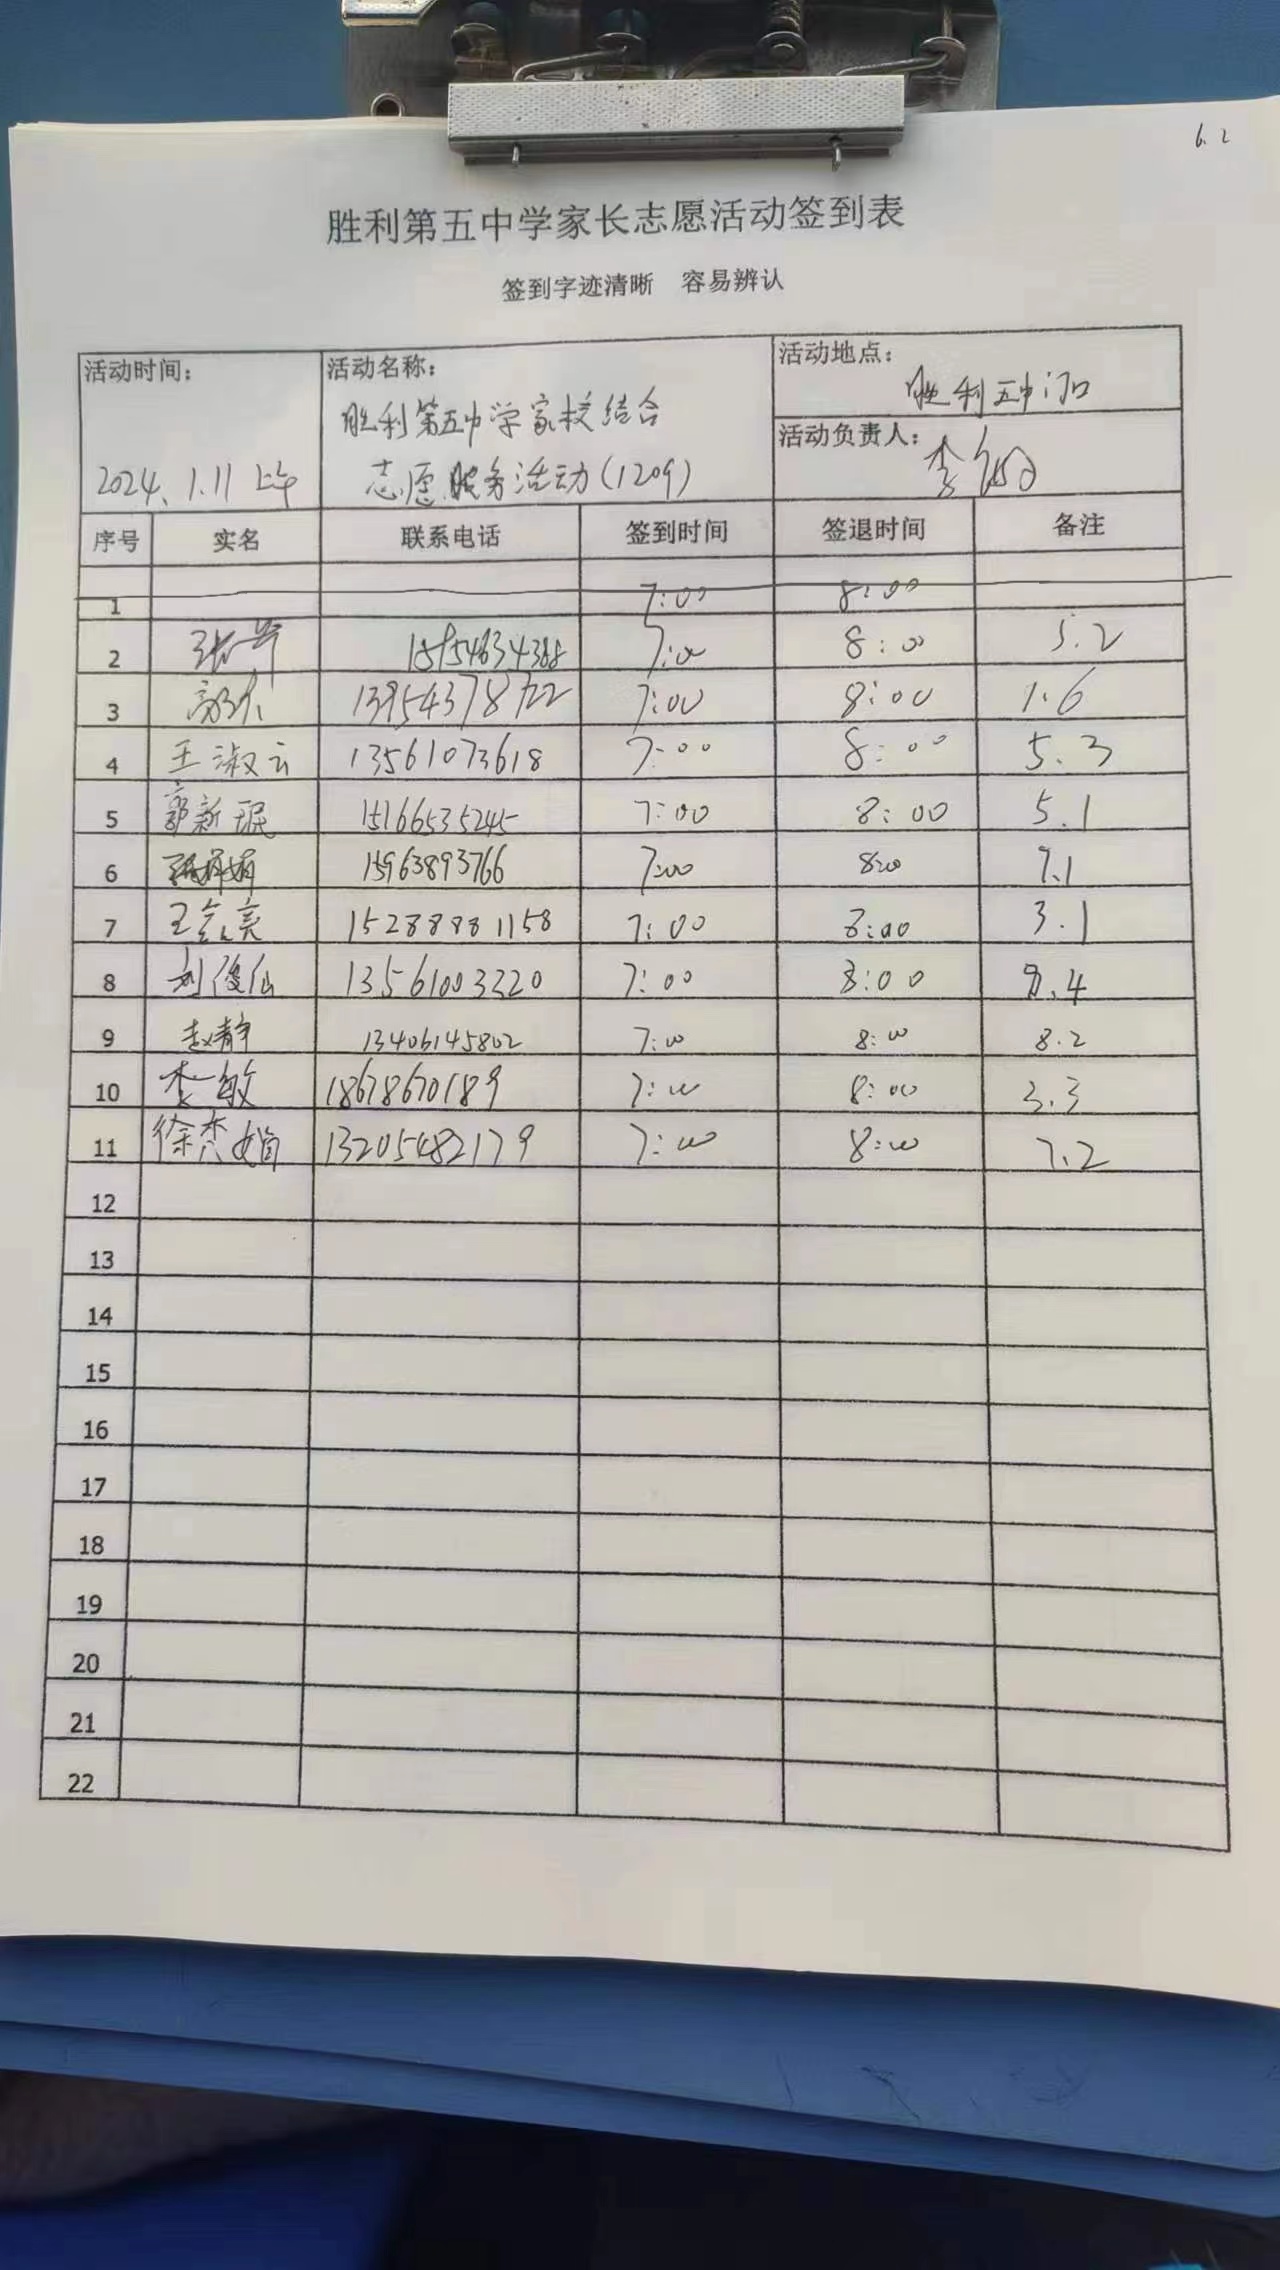 6.2
胜利第五中学家长志愿活动签到表
签到字迹清晰 容易辨认
活动时间： 活动名称： 活动地点：
胜利五中门口
胜利第五中学家校结合
活动负责人：
2024.1.11 上午 志愿服务活动(1209)
序号 实名 联系电话 签到时间 签退时间 备注
1 7:00 8:00
2 15954634388 7:00 8:00 5.2
3 7:00 8:00 1.6
4 王淑云 13561073618 7:00 8:00 5.3
5 郭新琨 15166535245 7:00 8:00 5.1
6 15963893766 7:00 8:00 7.1
7 15288881158 7:00 8:00 3.1
8 刘俊仙 13561003220 7:00 8:00 8.4
9 赵静 13406145802 7:00 8:00 8.2
10 李敏 18678670189 7:00 8:00 3.3
11 徐秀娟 13205482179 7:00 8:00 7.2
12
13
14
15
16
17
18
19
20
21
22